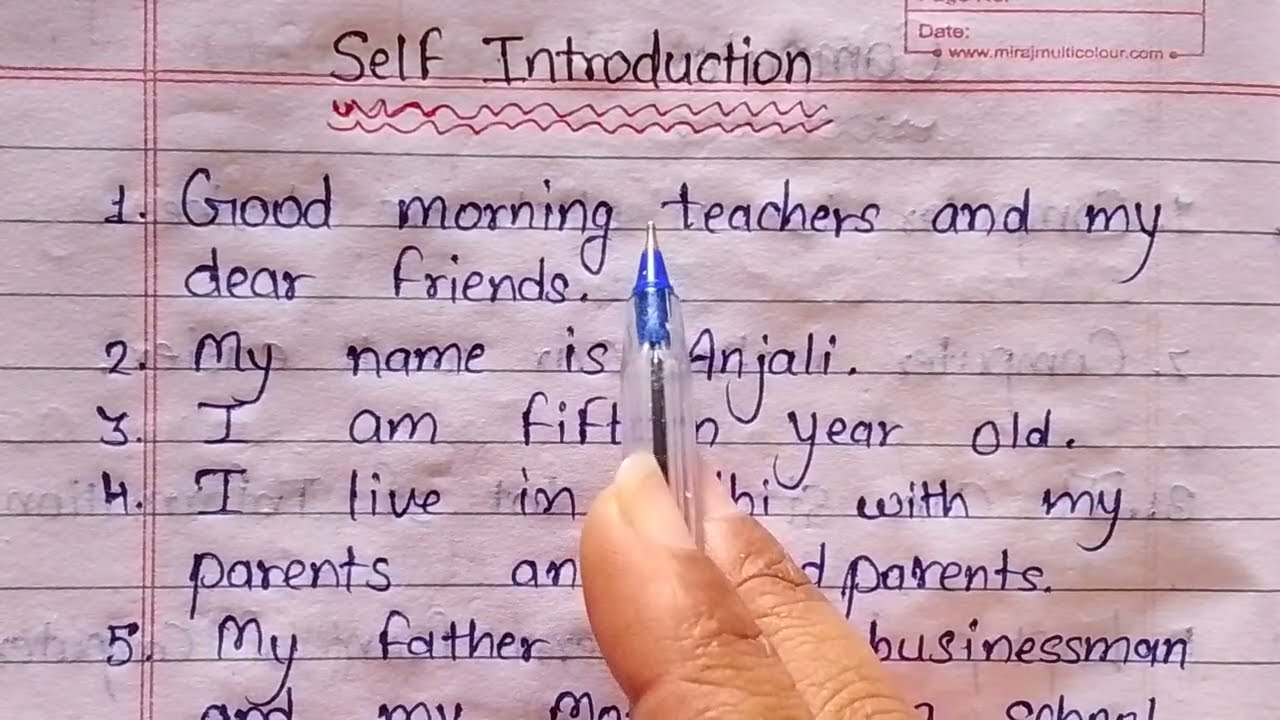 Date:
www.mirajmulticolour.com
Self Introduction
1. Good morning teachers and my
dear friends.
2. My name is Anjali.
3. I am year old.
4. I live in with my
parents
5. My father businessman
and my school